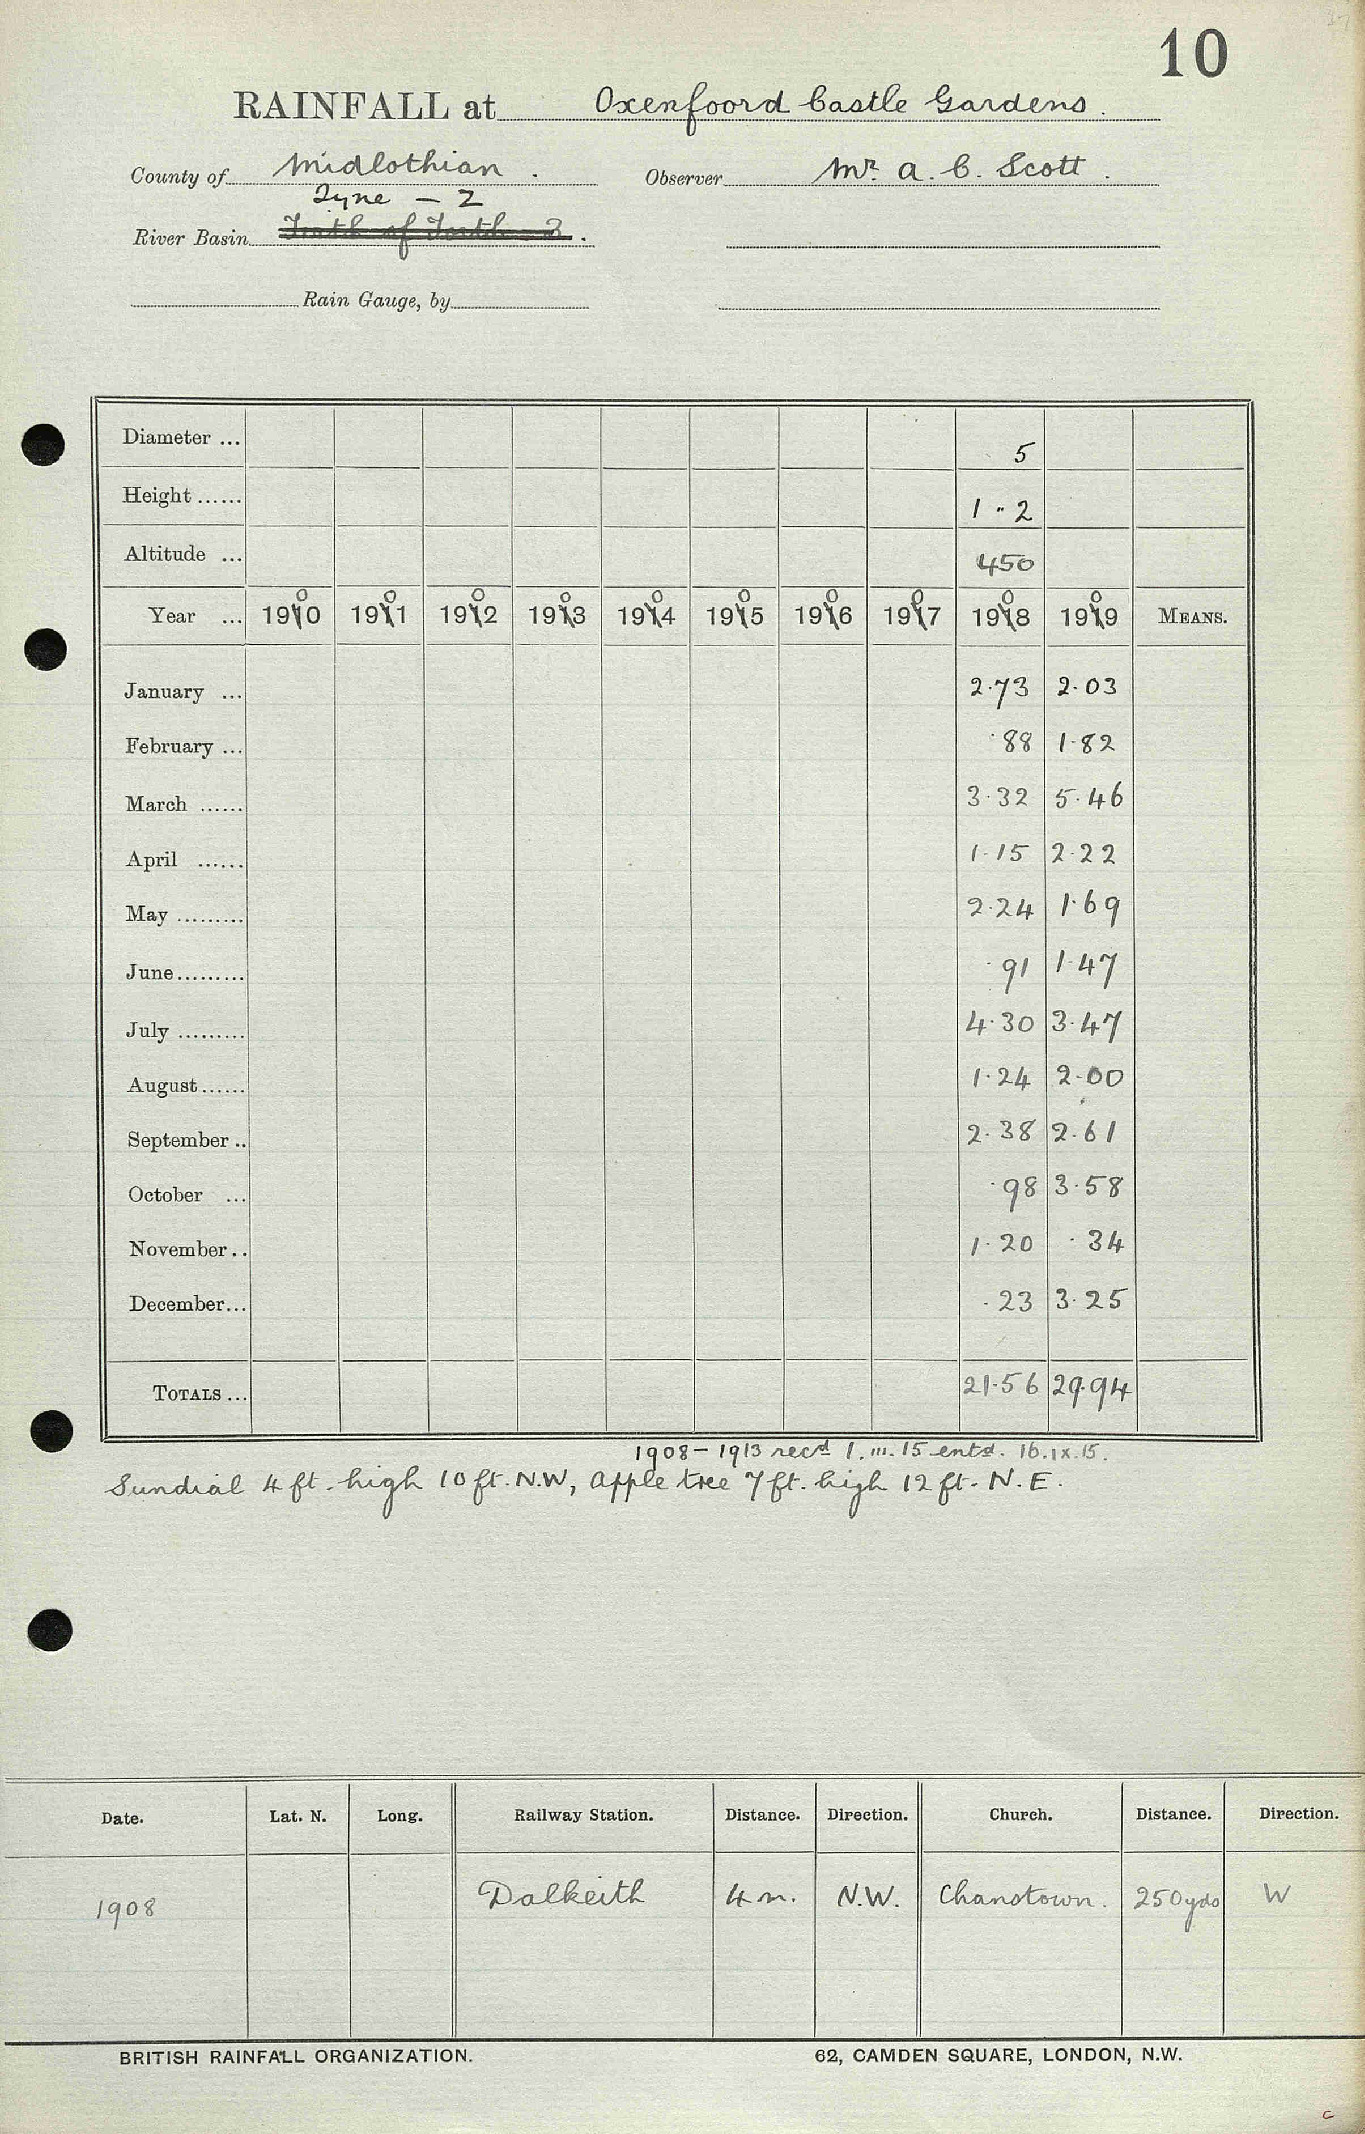 10
RAINFALL at Oxenfoord Castle Gardens.
County of Midlothian. Observer Mr. A. C. Scott.
Tyne - 2
River Basin Firth of Forth - 3.
Rain Gauge, by
Diameter ... 5
Height ...... 1 " 2
Altitude ... 450
Year ... 1900 1901 1902 1903 1904 1905 1906 1907 1908 1909 MEANS.
January ... 2.73 2.03
February ... .88 1.82
March ...... 3.32 5.46
April ...... 1.15 2.22
May ......... 2.24 1.69
June ......... .91 1.47
July ......... 4.30 3.47
August ...... 1.24 2.00
September .. 2.38 2.61
October ... .98 3.58
November .. 1.20 .34
December ... .23 3.25
TOTALS ... 21.56 29.94
1908 - 1913 recd 1.iii.15 entd. 16.ix.15.
Sundial 4 ft. high 10 ft. N.W, apple tree 7 ft. high 12 ft. N.E.
Date. Lat. N. Long. Railway Station. Distance. Direction. Church. Distance. Direction.
1908 Dalkeith 4 m. N.W. Chanstown. 250 yds W
BRITISH RAINFALL ORGANIZATION. 62, CAMDEN SQUARE, LONDON, N.W.
c